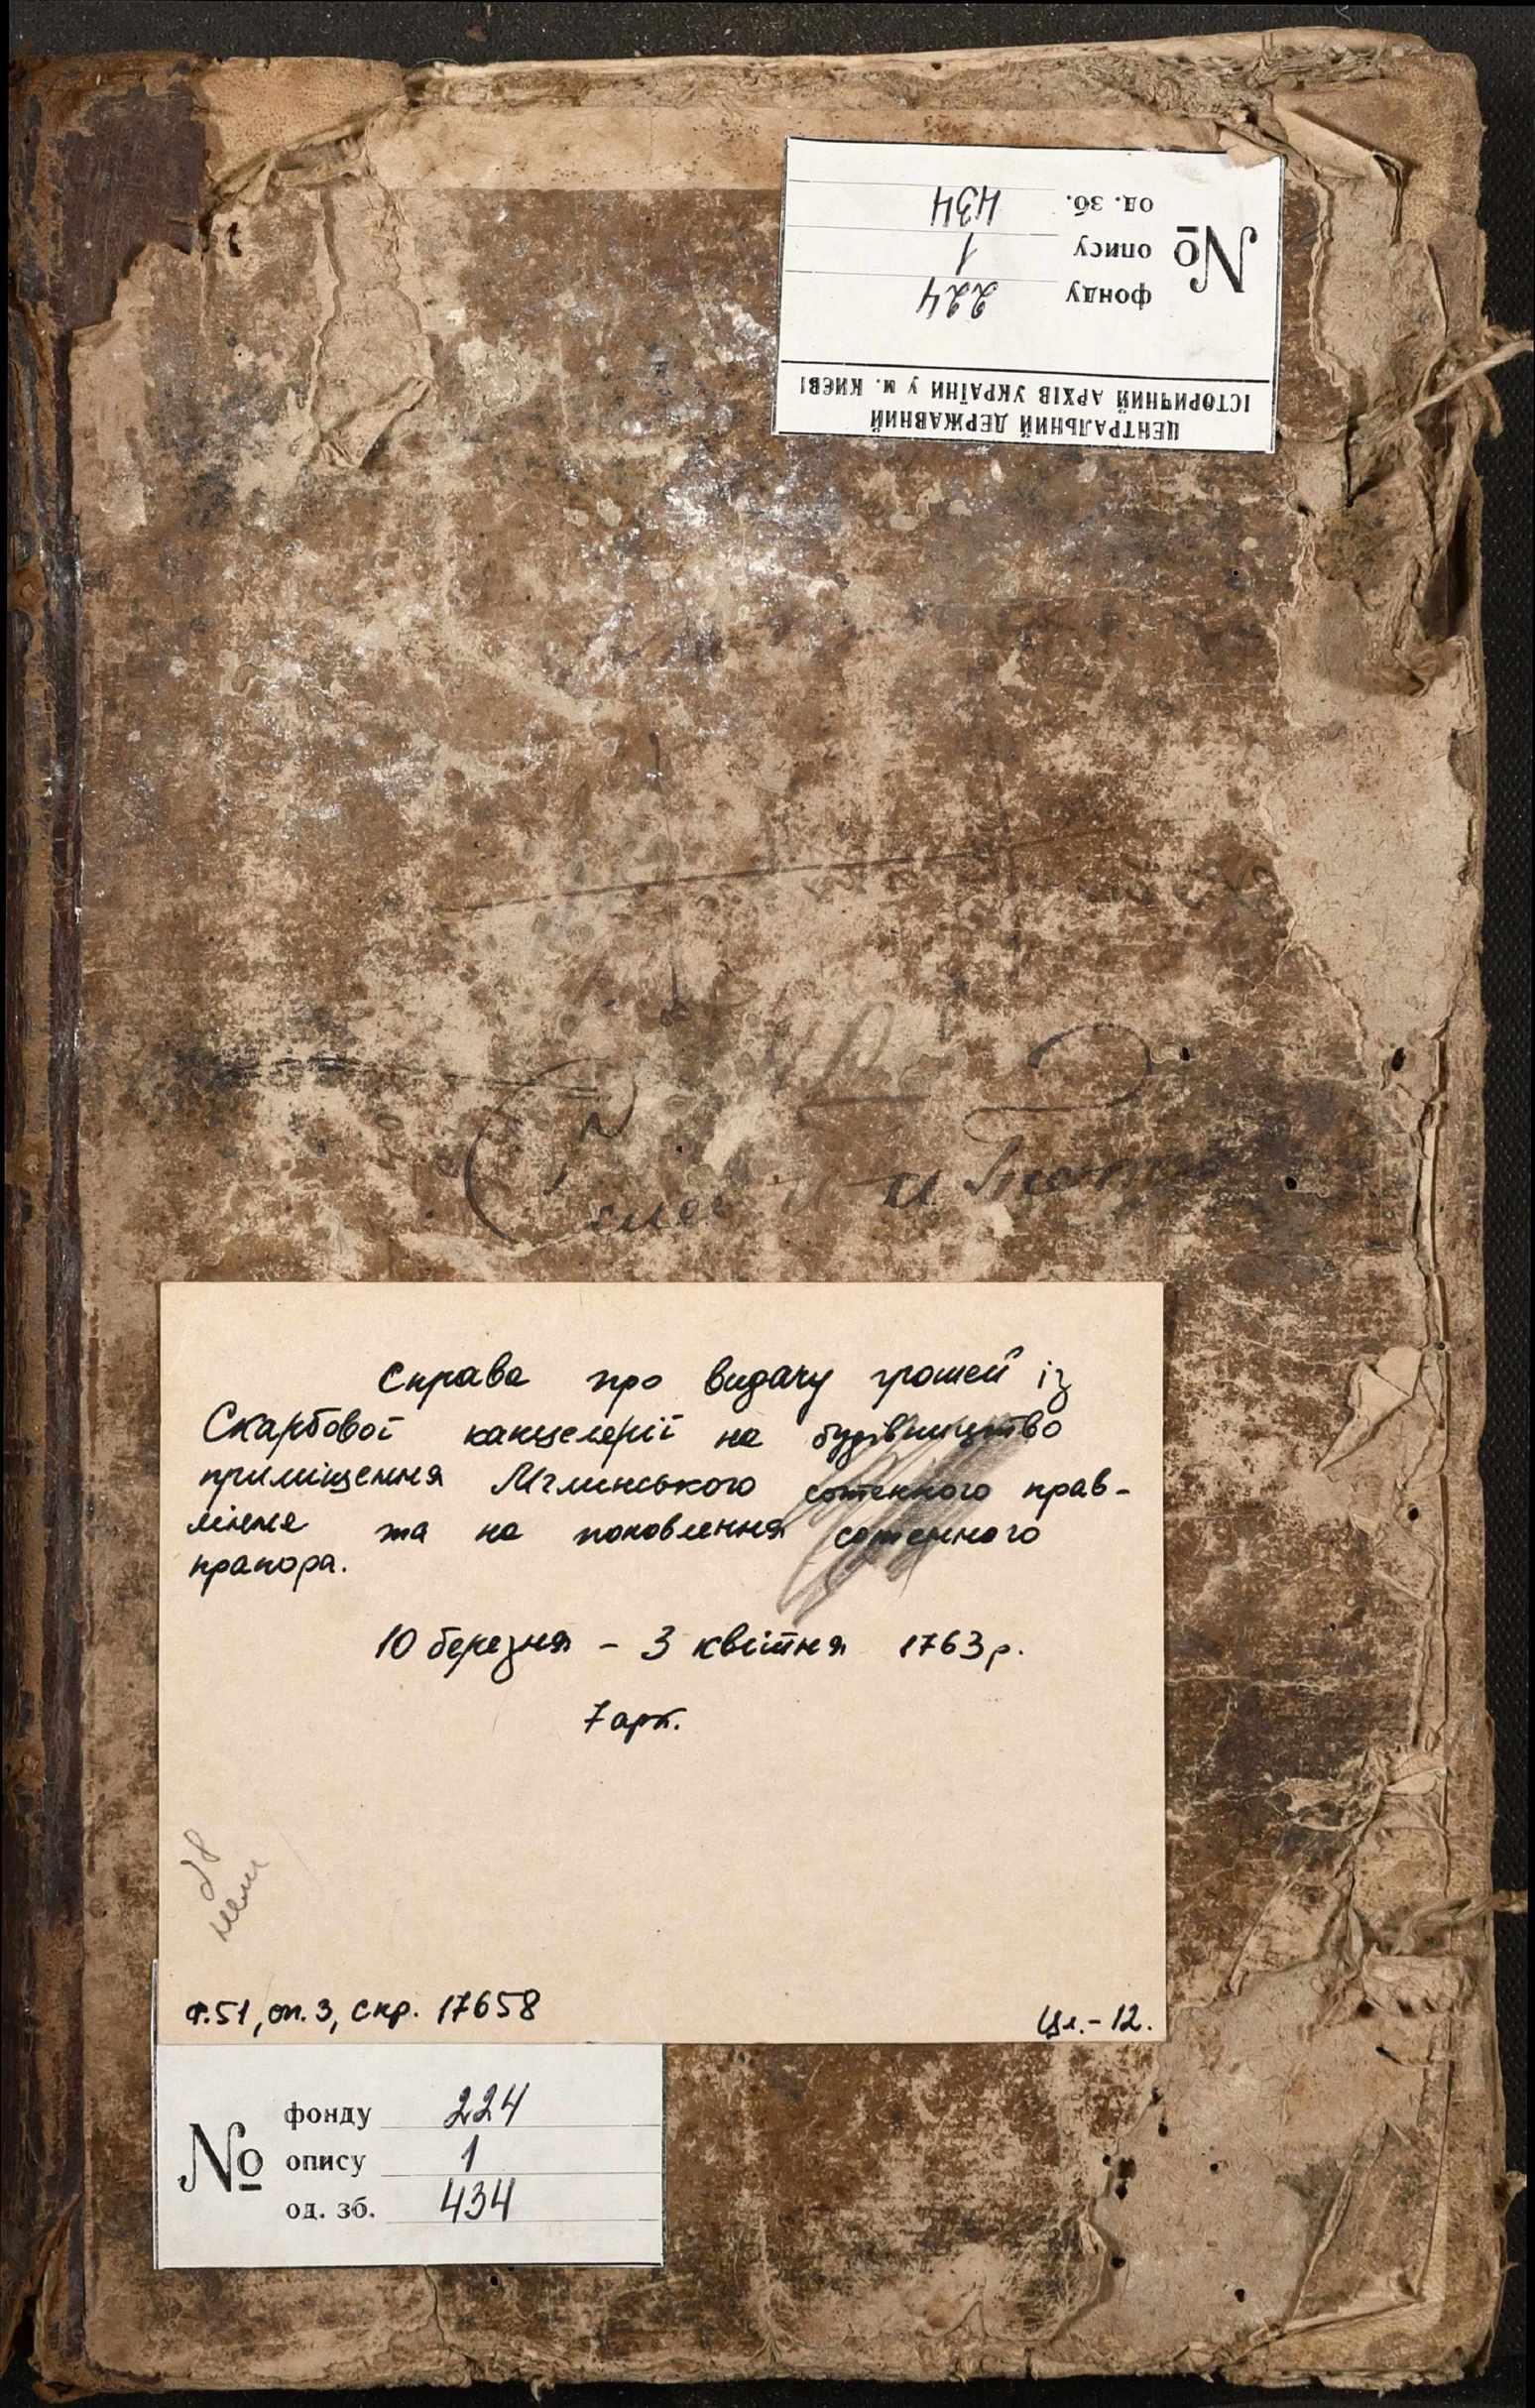 ЦЕНТРАЛЬНИЙ ДЕРЖАВНИЙ
ІСТОРИЧНИЙ АРХІВ УКРАЇНИ У м. КИЄВІ
№
фонду 224
опису 1
од. зб. 434
и
Справа про видачу грошей із
Скарбової канцелярії на будівництво
приміщення Мглинського сотенного прав-
ління та на поновлення сотенного
прапора.
10 березня – 3 квітня 1763 р.
7 арк.
Ф.51, оп. 3, спр. 17658
Ця.- 12.
№
фонду 224
опису 1
од. зб. 434